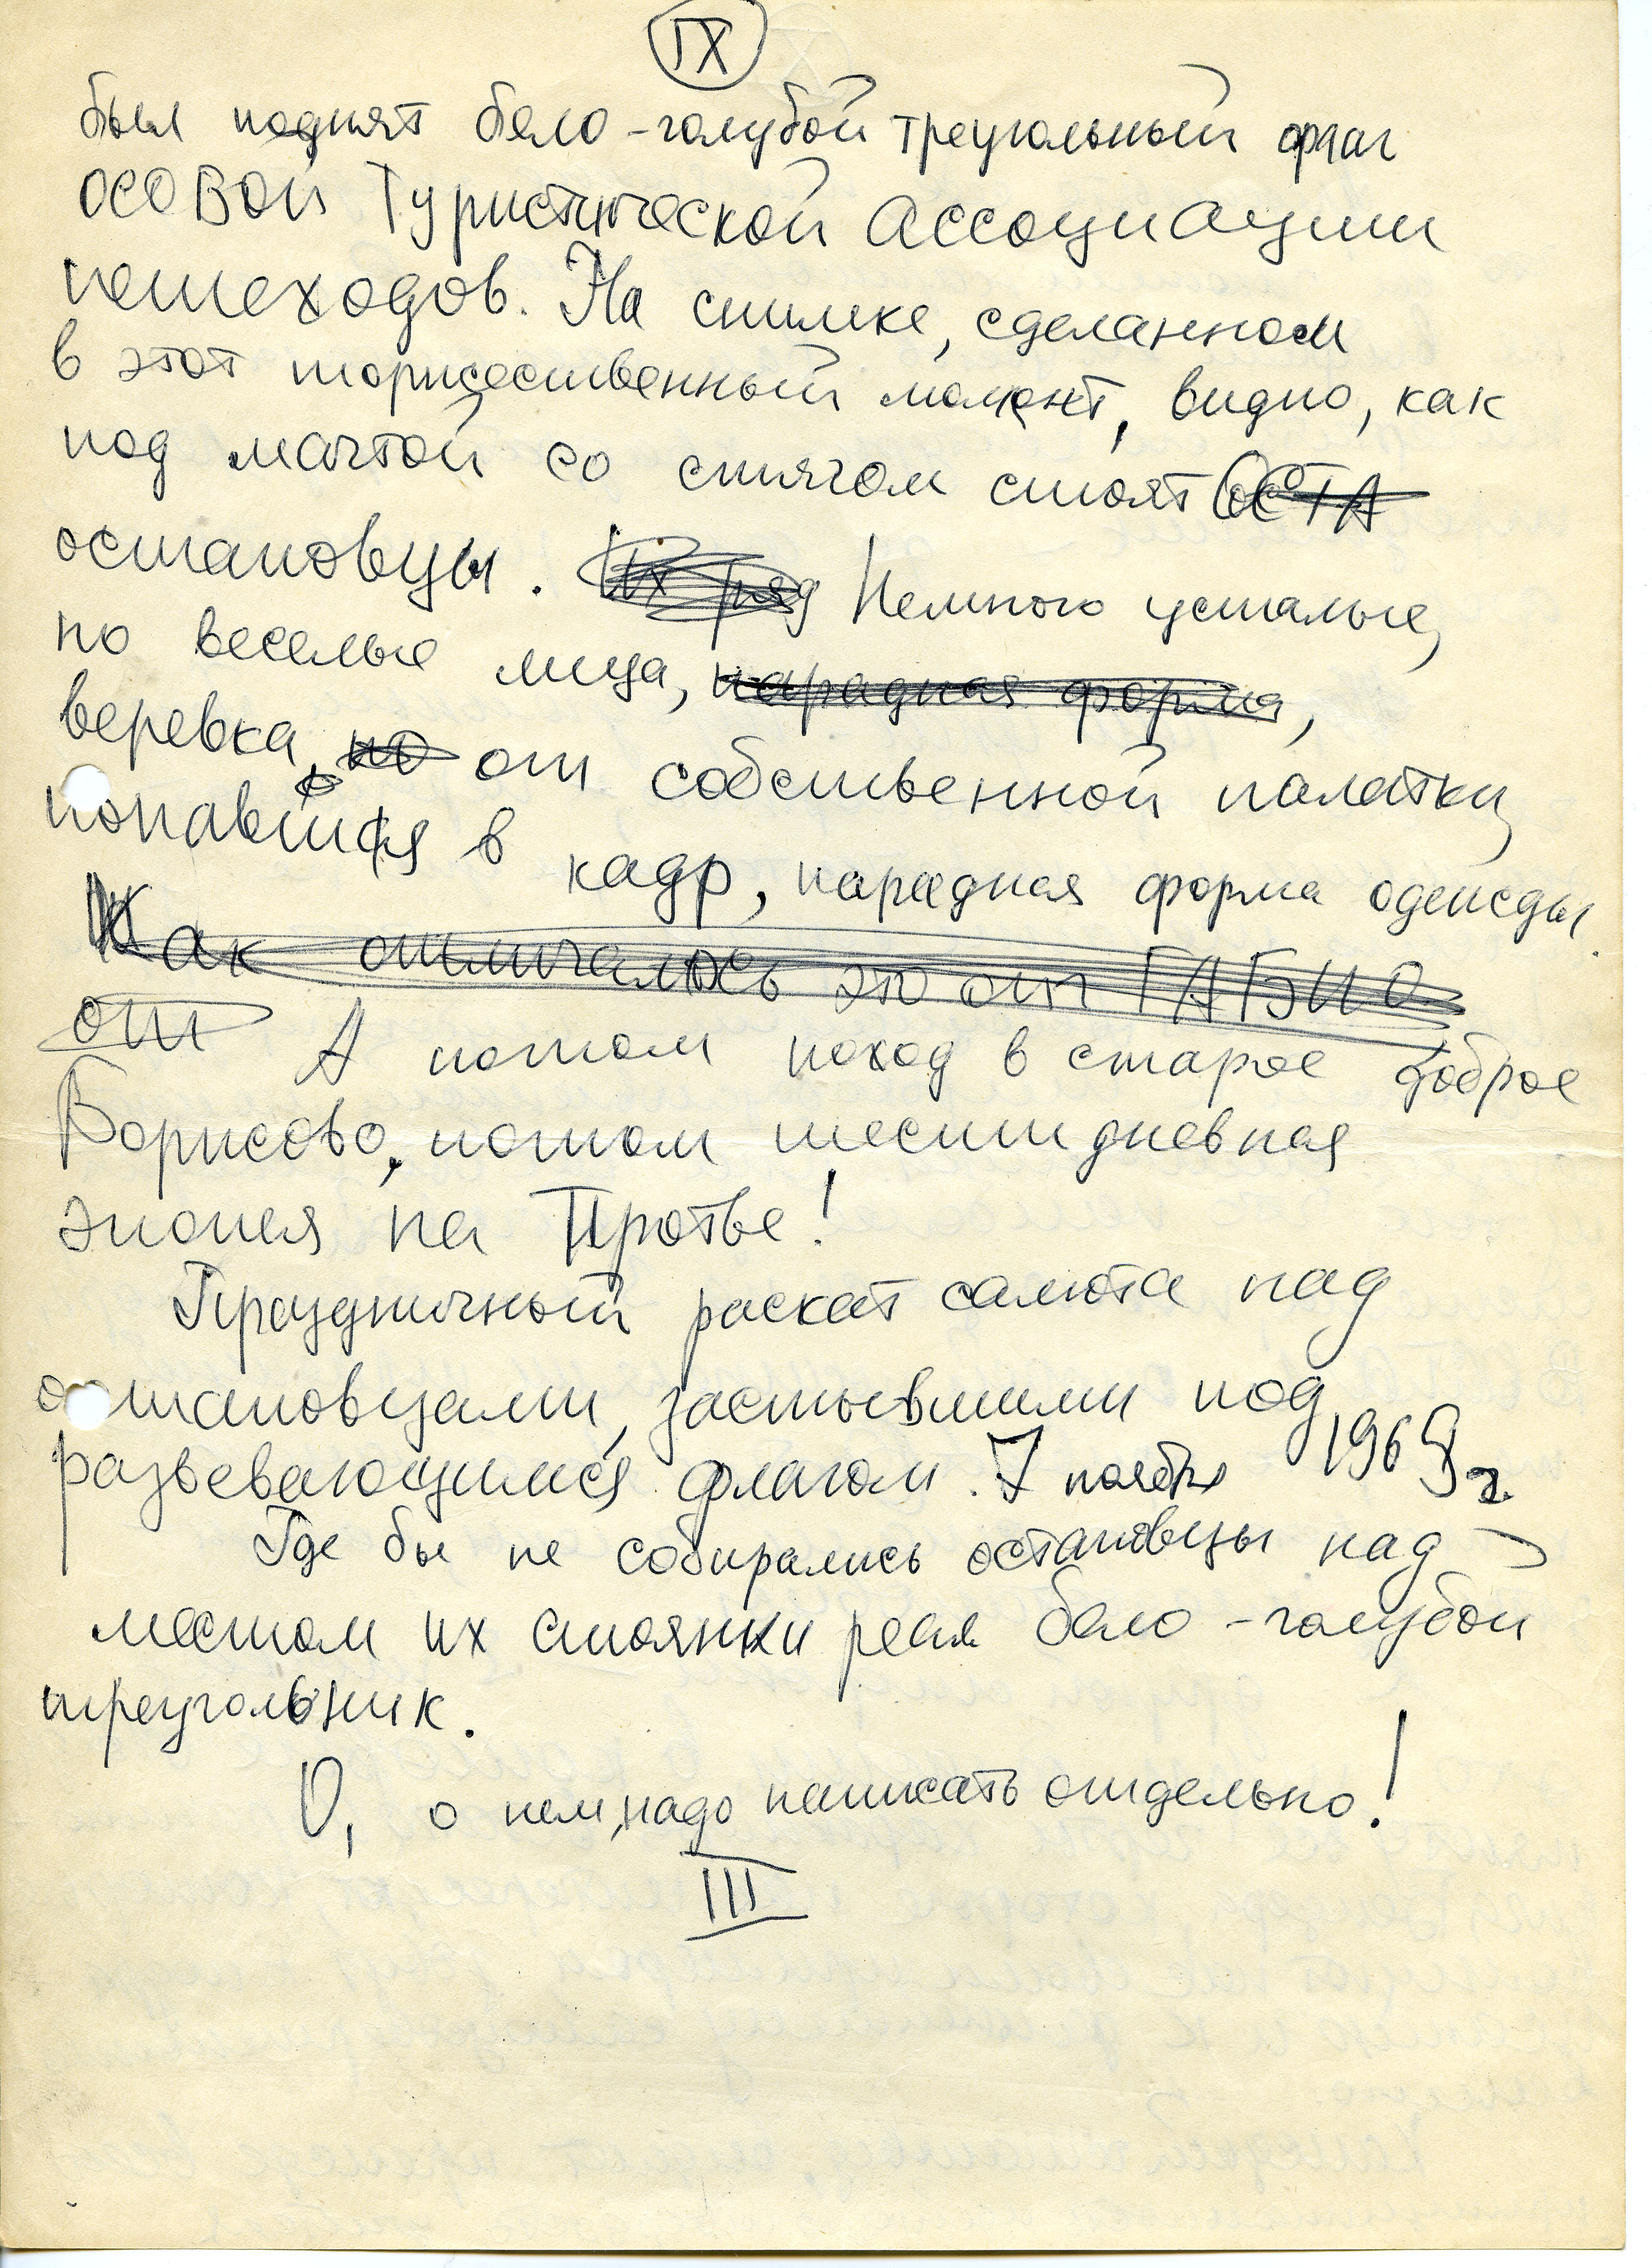 IX
был поднят бело-голубой треугольный флаг
ОСОВОЙ Туристической Ассоциации
пешеходов. На снимке, сделанном
в этот торжественный момент, видно, как
под мачтой со стягом стоят ОСТА
остановцы. Их ряд Немного усталые,
но веселые лица, парадная форма,
веревка, но от собственной палатки,
попавшая в кадр, парадная форма одежды.
Как отличалось это от ГАБИО
от А потом поход в старое доброе
Борисово, потом шестидневная
эпопея на Протве!
Праздничный раскат салюта над
остановцами, застывшими под
развевающимся флагом. 7 ноября 1969 г.
Где бы не собирались остановцы над
местом их стоянки реял бело-голубой
треугольник.
О, о нем, надо написать отдельно!
III